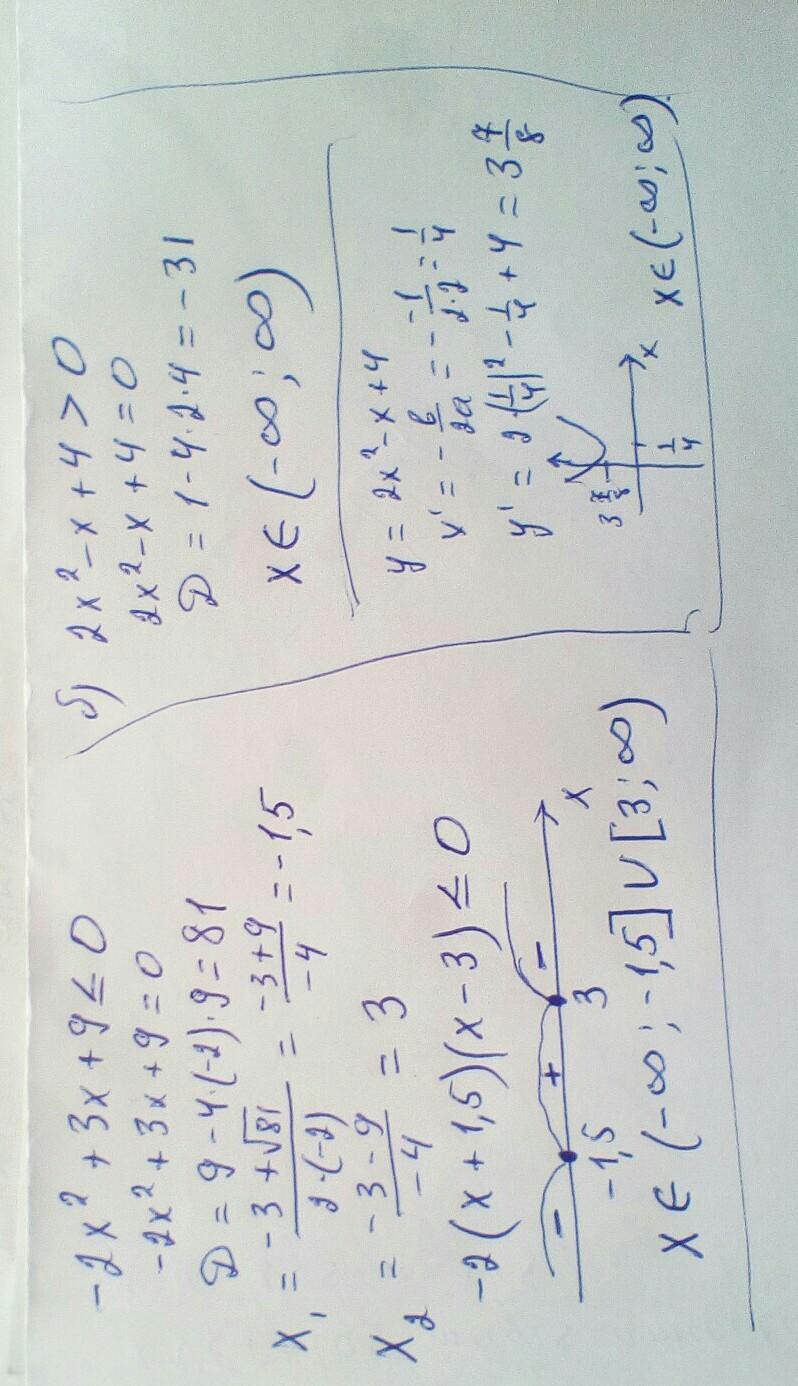 -2x² + 3x + 9 ≤ 0
-2x² + 3x + 9 = 0
D = 9 - 4·(-2)·9 = 81
x₁ = (-3 + √81)/(2·(-2)) = (-3+9)/(-4) = -1,5
x₂ = (-3-9)/(-4) = 3
-2(x+1,5)(x-3) ≤ 0
- + -
-1,5 3 x
x ∈ (-∞; -1,5] ∪ [3; ∞)
б) 2x² - x + 4 > 0
2x² - x + 4 = 0
D = 1 - 4·2·4 = -31
x ∈ (-∞; ∞)
y = 2x² - x + 4
x' = -b/2a = -(-1)/(2·2) = 1/4
y' = 2·(1/4)² - 1/4 + 4 = 3 7/8
3 7/8
1/4 x
x ∈ (-∞; ∞).